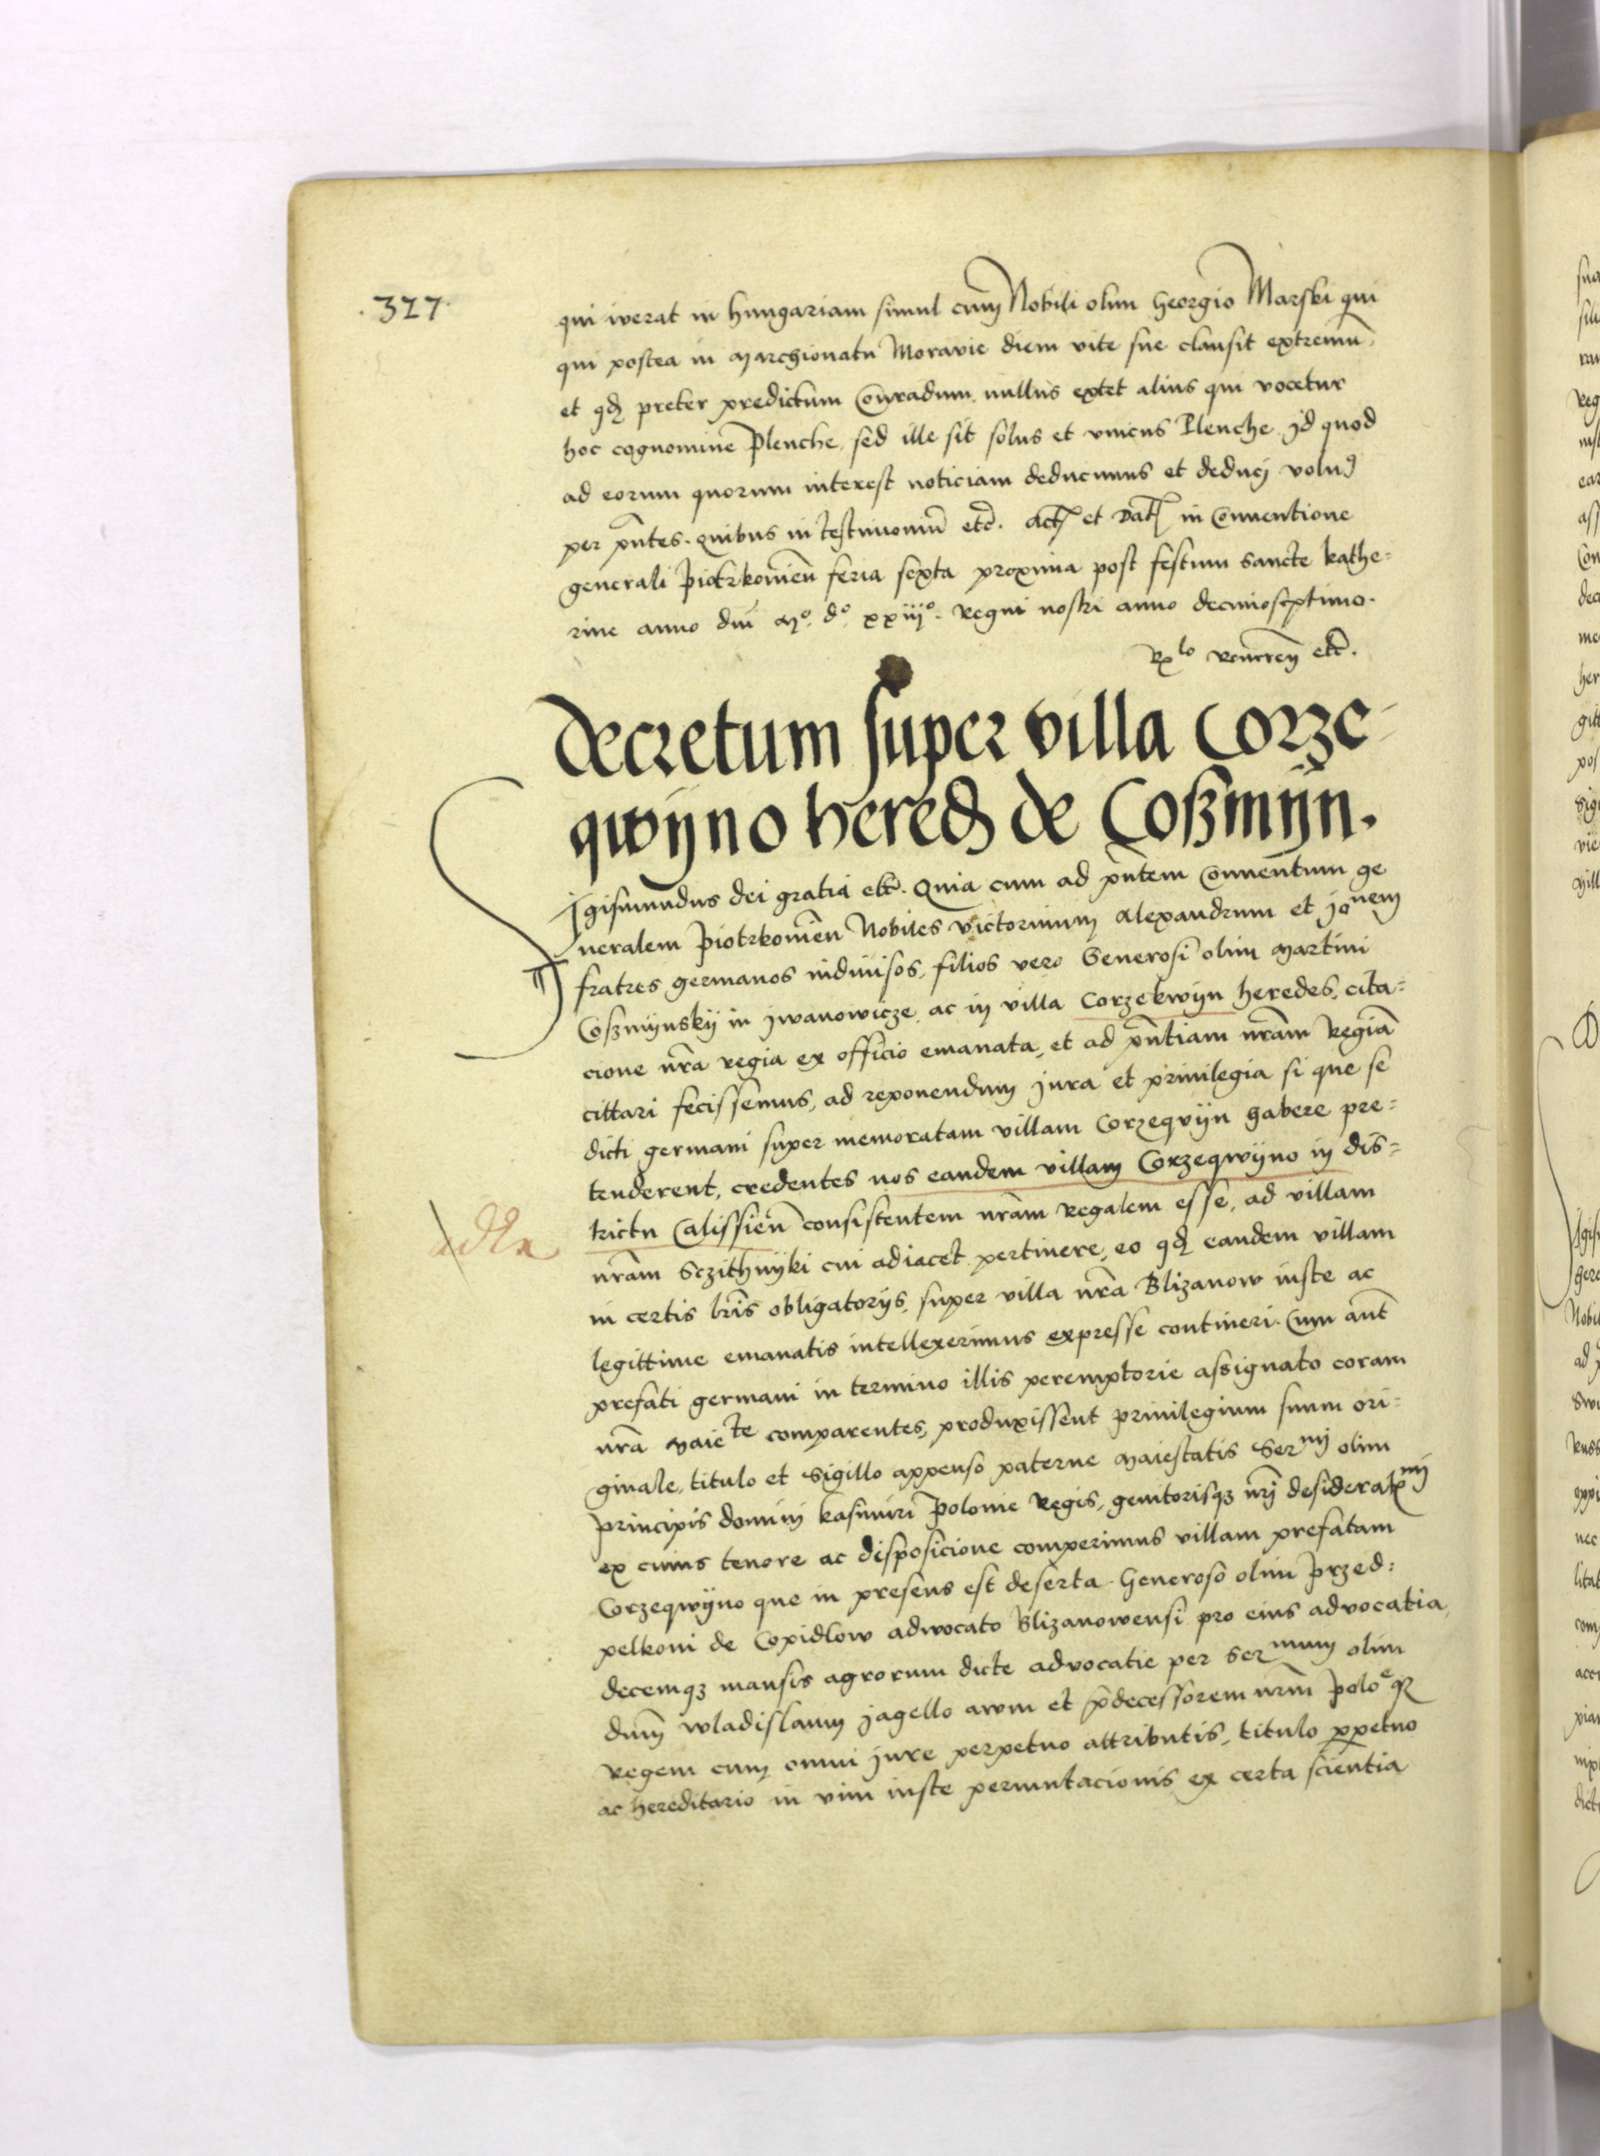 .327.
qui iverat in hungariam simul cum Nobili olim Georgio Marski qui
qui postea in marchionatu Moravie diem vite sue clausit extremũ,
et qđ preter predictum Conradum nullus extet alius qui vocetur
hoc cognomine Plenche, sed ille sit solus et vnicus Plenche. Jd quod
ad eorum quorum interest noticiam deducimus et deduci volum9
per pñtes. quibus in testimoniũ etc̃. Act et Dat in Conuentione
generali Piotrkouieñ feria sexta proxima post festum Sancte kathe=
rine anno dni Mo. do. xxiijo. Regni nostri anno decimoseptimo.
Rlo Reueren etc̃.
Decretum super villa Corze-
qwÿno hered de Coßmÿn.
Sigismundus dei gratia etc̃. Quia cum ad pñtem Conuentum ge
neralem Piotrkouieñ Nobiles Victorinum Alexandrum et joñem
fratres germanos indiuisos, filios vero Generosi olim Martini
Coßmÿnskÿ in Jwanowicze, ac in villa Corzekwÿn heredes, cita=
cione nr̃a regia ex officio emanata, et ad pñtiam nrãm Regiã
cittari fecissemus, ad reponendum jura et priuilegia si que se
dicti germani super memoratam villam Corzeqvÿn habere pre=
tenderent, credentes nos eandem villam Corzeqwÿno in dis=
trictu Calissieñ consistentem nrãm regalem esse, ad villam
nrãm Sczithnÿki cui adiacet pertinere, eo qđ eandem villam
in certis lr̃is obligatorijs, super villa nr̃a Blizanow iuste ac
legittime emanatis intellexerimus expresse contineri. Cum aut̃
prefati germani in termino illis peremptorie assignato coram
nr̃a Maiete comparentes, produxissent priuilegium suum ori=
ginale, titulo et Sigillo appenso paterne Maiestatis Sermi olim
principis domini kasimiri Polonie Regis, genitorisqz nr̃i desideratmi
ex cuius tenore ac disposicione comperimus villam prefatam
Corzeqwÿno que in presens est deserta. Generoso olim Przed=
pelkoni de Copidlow adwocato Blizanowensi pro eius advocatia,
decemqz mansis agrorum dicte advocatie per Sermum olim
dnm̃ Wladislaum Jagello avum et p̃decessorem nrm̃ Poloe qz
regem cum omni jure perpetuo attributis, titulo ppetuo
ac hereditario in vim iuste permutacionis ex certa scientia